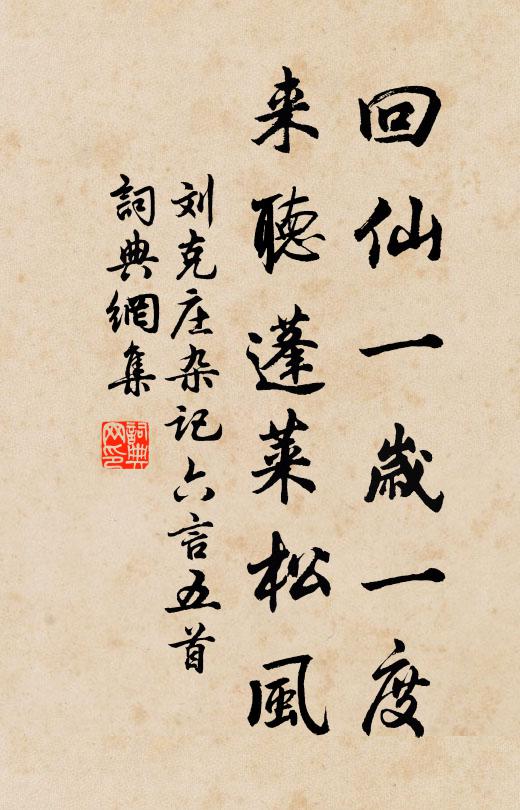 回仙一歳一度
来聽蓬莱松風
刘克庄杂记六言五首
詞典網集
詞典網印